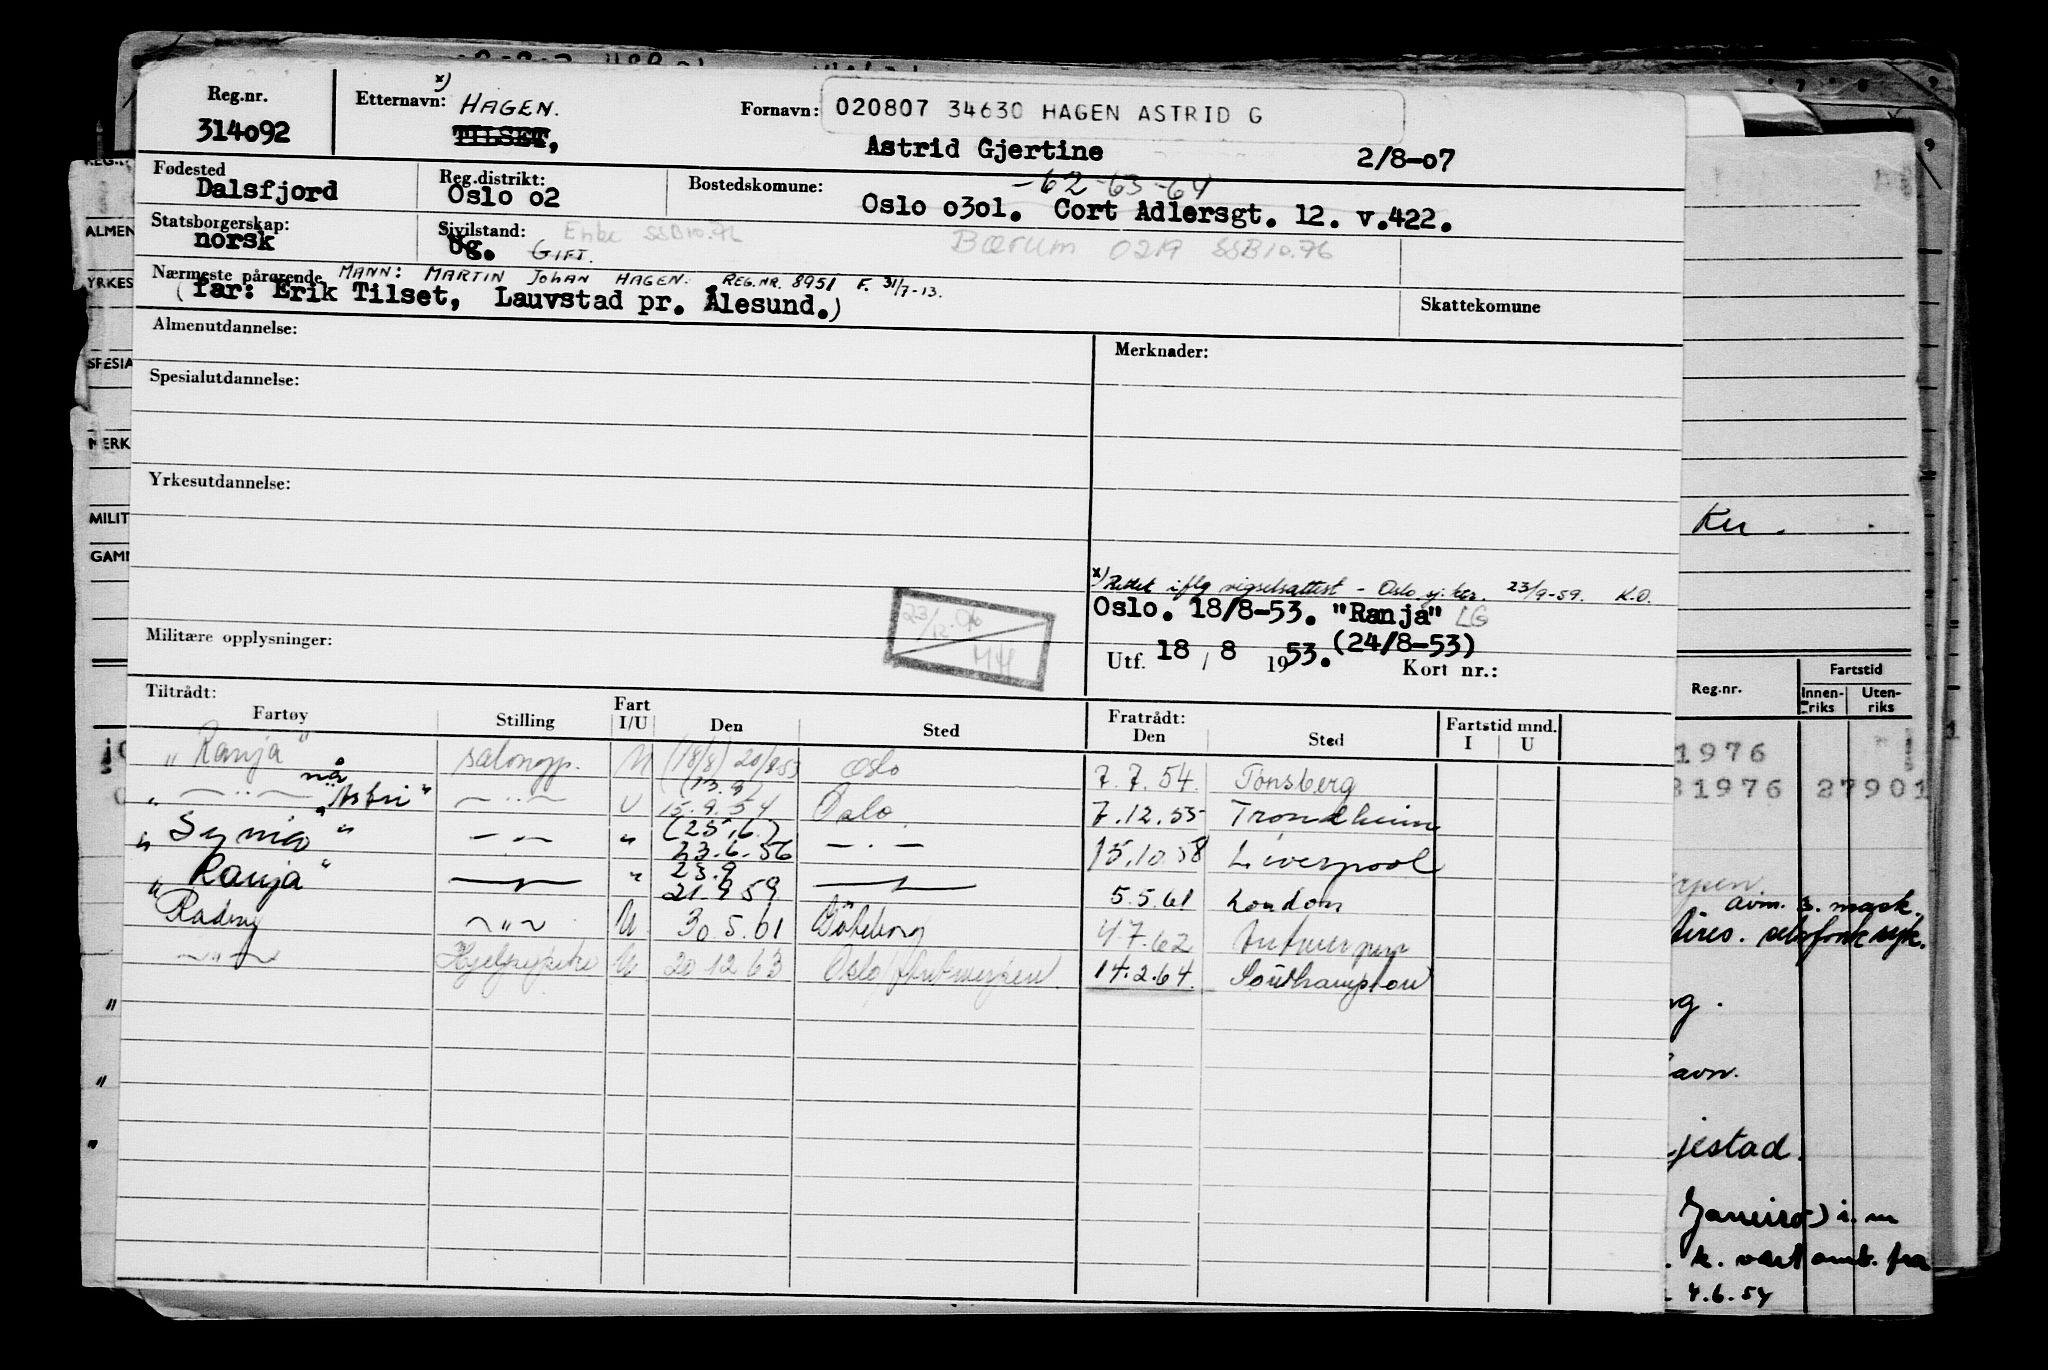 Reg.nr. 314092
Etternavn: x) HAGEN.
TILSET,
Fornavn: 020807 34630 HAGEN ASTRID G
Astrid Gjertine 2/8-07
Fødested Dalsfjord
Reg.distrikt: Oslo 02
Bostedskomune: -62-63-64
Oslo 0301. Cort Adlersgt. 12. v.422.
Statsborgerskap: norsk
Sivilstand: Enke SSB10.76
Ug. GIFT.
Bærum 0219 SSB10.76
Nærmeste pårørende MANN: MARTIN JOHAN HAGEN. REG.NR. 8951 F. 31/7-13.
(far: Erik Tilset, Lauvstad pr. Ålesund.)
Skattekomune
Almenutdannelse:
Merknader:
Spesialutdannelse:
Yrkesutdannelse:
x) Rettet iflg vigselsattest - Oslo 23/9-59. K.O.
Oslo. 18/8-53. "Ranja" LG
Militære opplysninger:
23/12.96
MH
Utf. 18 / 8 1953. (24/8-53) Kort nr.:
Tiltrådt: Fartøy Stilling Fart I/U Den Sted Fratrådt: Den Sted Fartstid mnd. I U
"Ranja" salongp. U (18/8) 20/8-53 Oslo 7.7.54 Tønsberg
— " — nå "Astri" — " — U (13.9) 15.9.54 Oslo 7.12.55 Trondheim
"Synia" — " — " (25.6.) 23.6.56 — . — 15.10.58 Liverpool
"Ranja" — " — " 23.9 21.9.59 — " — 5.5.61 London
"Radny — " — U 30.5.61 Göteborg 4.7.62 Antwerpen
— " — Hjelpsykepl U 20.12.63 Oslo/Antwerpen 14.2.64. Southampton
ALMEN
YRKES
SPESIA
MERK
MILIT
GAMM
Ku.
Reg.nr. Fartstid
Innenriks Utenriks
1976
81976 27901
avm. 3. mask.
jestad.
Janeiro) i. m
k. vært omb. fra
4.6.54